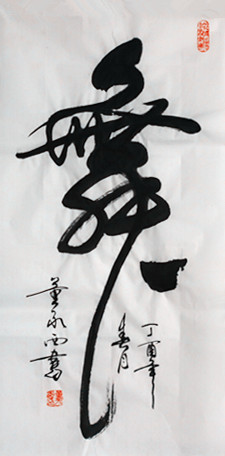 舞
丁酉年
春月
董永西書